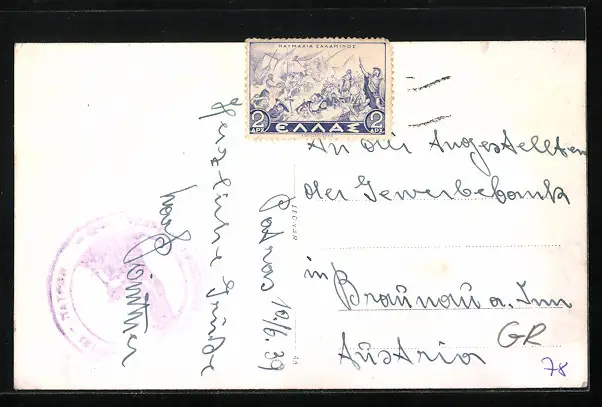 ΝΑΥΜΑΧΙΑ ΣΑΛΑΜΙΝΟΣ
2 ΔΡΧ ΕΛΛΑΣ 2 ΔΡΧ
Herzliche Grüße
Günther
Patras 10/6.39
An die Angestellten
der Gewerbebank
in
Braunau a. Inn
Austria
GR
78